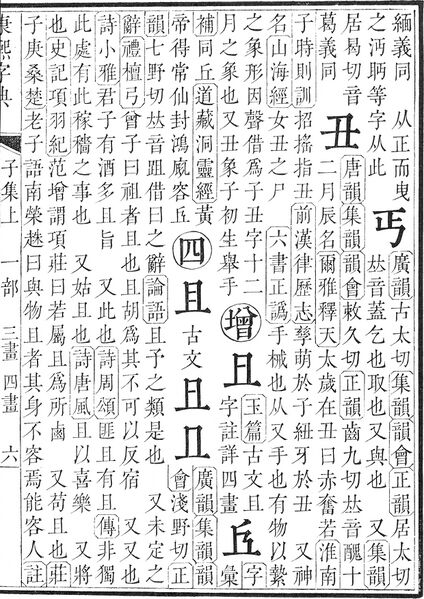 緬義同 从正而曳
之沔眄等字从此
丐
廣韻古太切集韻韻會正韻居太切
𠀤音蓋乞也取也又與也 又集韻
居曷切音
葛義同
丑
唐韻集韻韻會敕久切正韻齒九切𠀤音醜十
二月辰名爾雅釋天太歲在丑曰赤奮若淮南
子時則訓招搖指丑前漢律歷志孳萌於子紐牙於丑 又神
名山海經女丑之尸 六書正譌手械也从又手也有物以縶
之象形因聲借爲子丑字十二
月之象也又丑象子初生舉手
增
玉篇古文且
字註詳四畫
字
彙
補同丘道藏洞靈經黃
帝得常仙封鴻
容
四
且
古文
廣韻集韻韻
會淺野切正
韻七野切𠀤音跙借曰之辭論語且予之類是也 又未定之
辭禮檀弓曾子曰祖者且也且胡爲其不可以反宿 又又也
詩小雅君子有酒多且旨 又此也詩周頌匪且有且傳非獨
此處有此稼穡之事也 又姑且也詩唐風且以喜樂 又將
也史記項羽紀范增謂項莊曰若屬且爲所鹵 又苟且也莊
子庚桑楚老子語南榮趎曰與物且者其身不容焉能容人註
康熙字典 子集上 一部 三畫 四畫 六